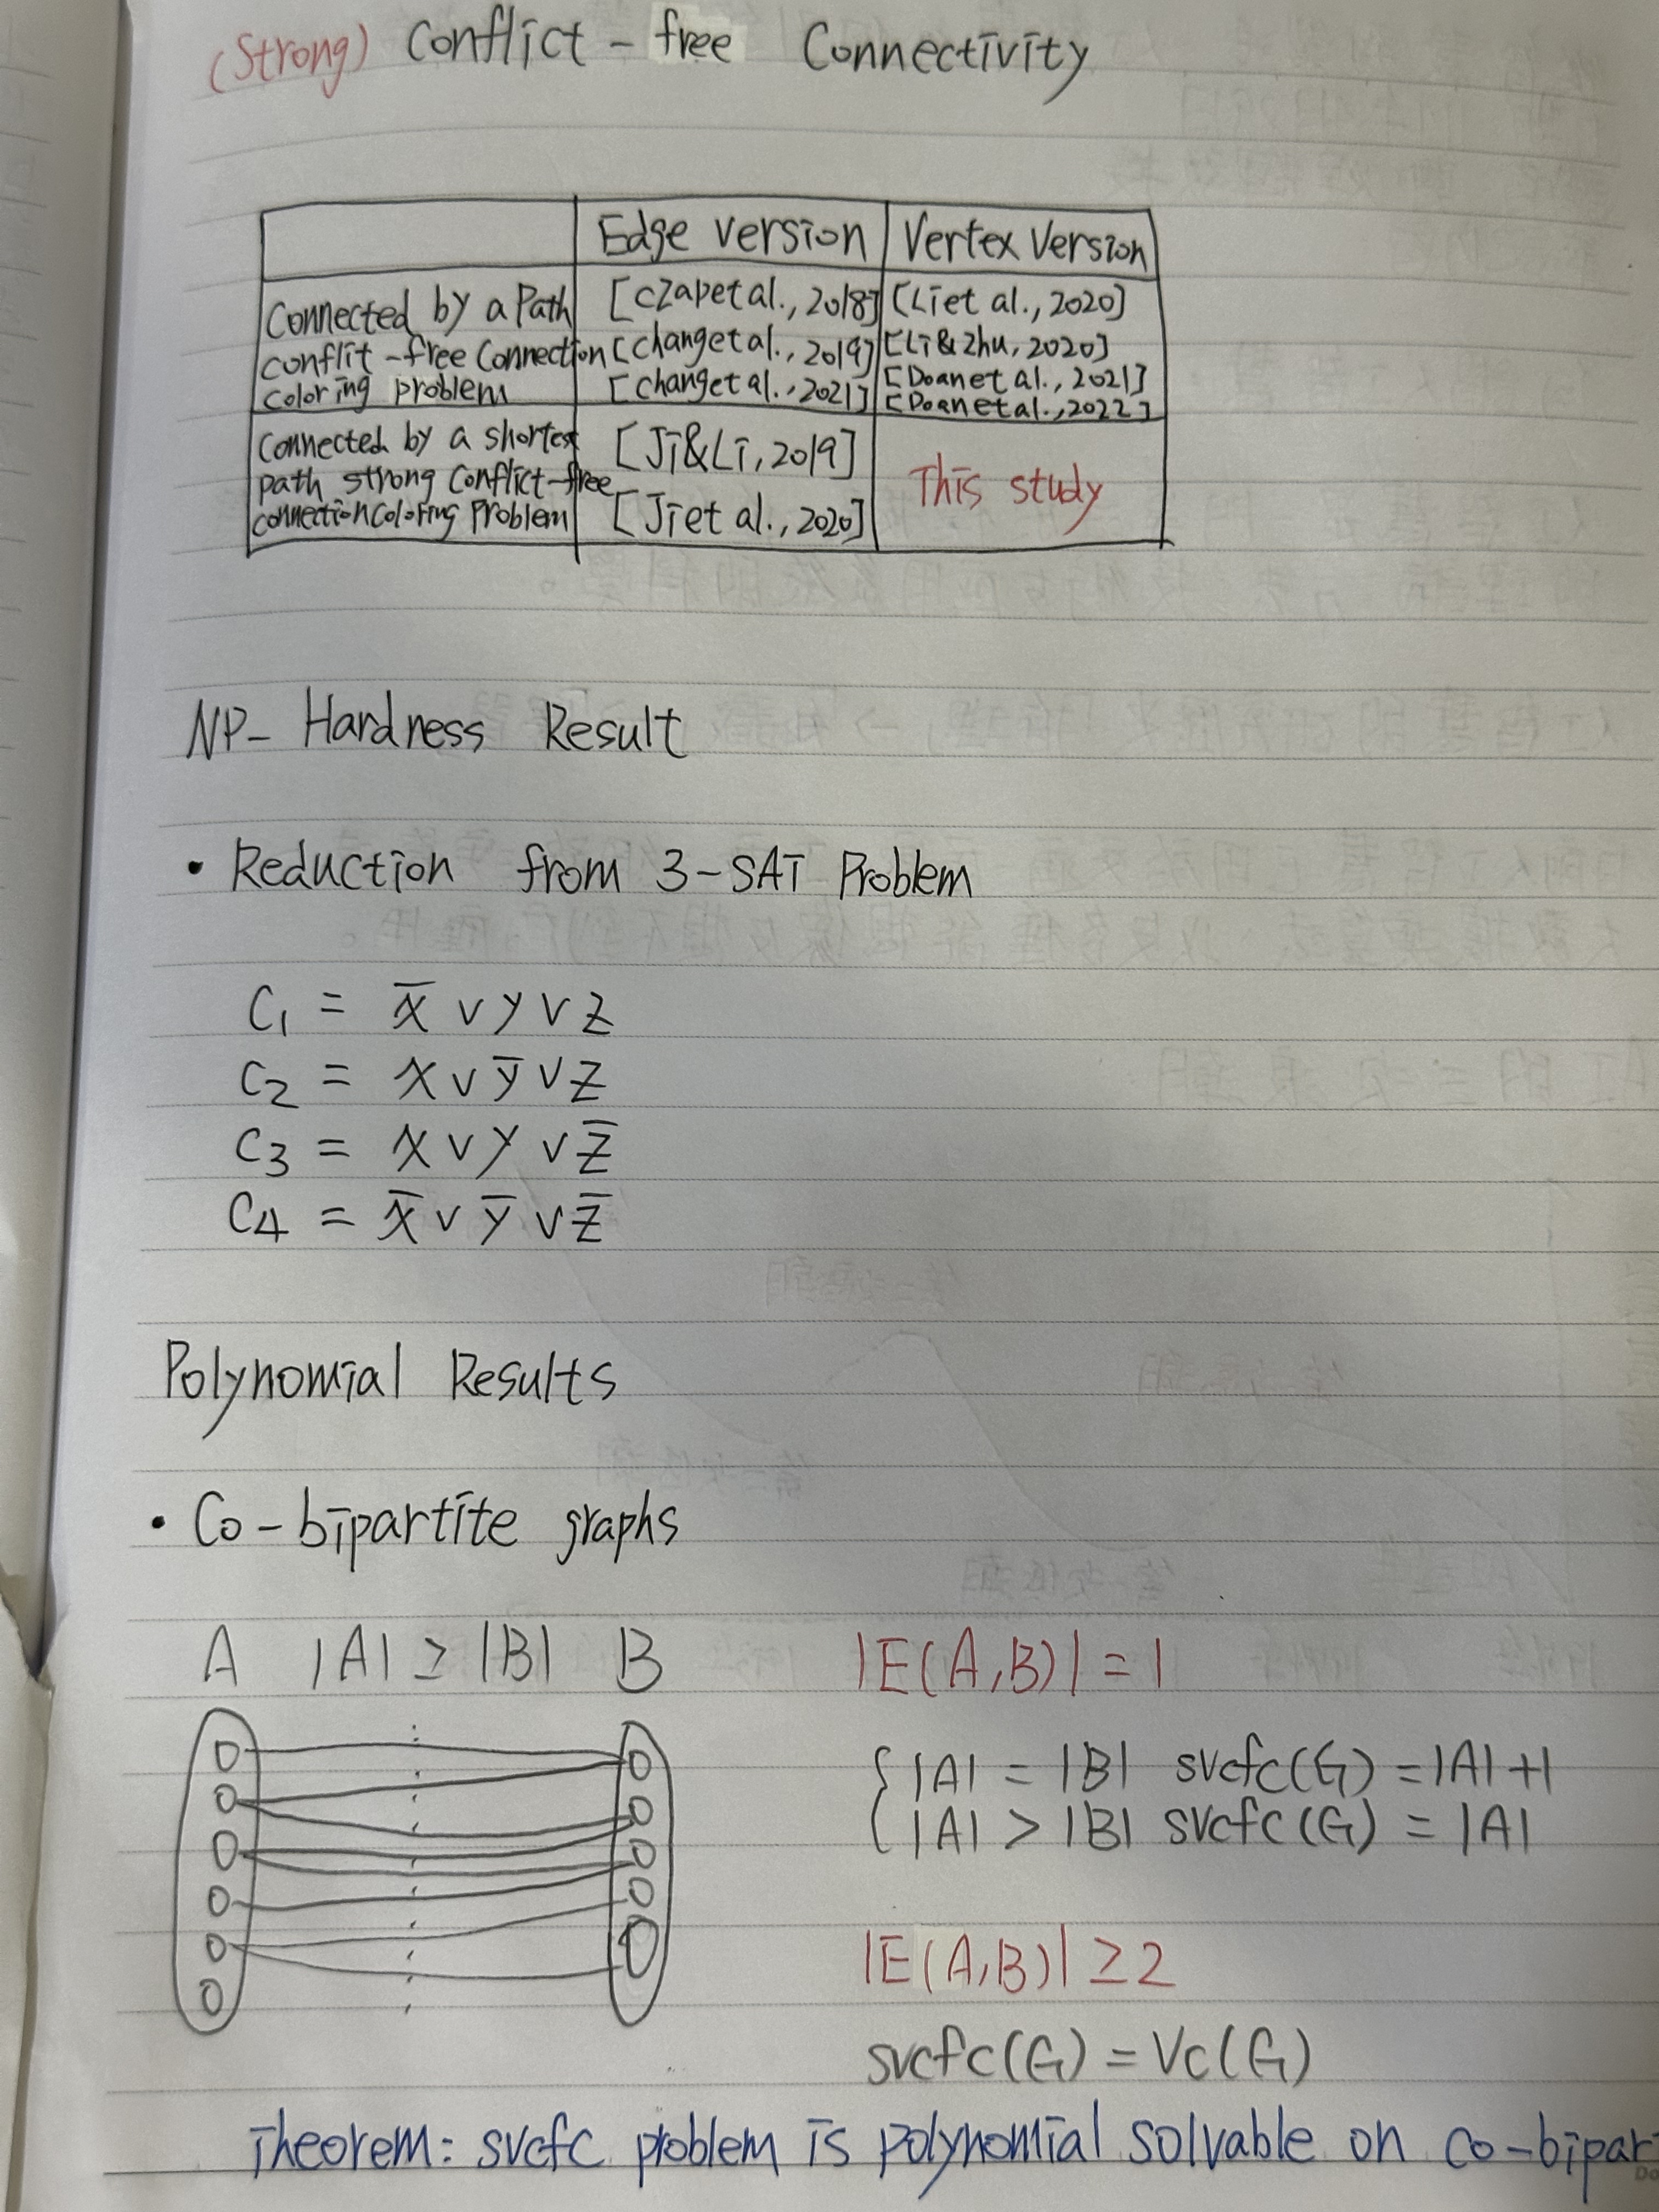 (Strong) Conflict-free Connectivity
Edge version Vertex Version
Connected by a Path
conflit-free Connection
coloring problem
[czapetal., 2018]
[changetal., 2019]
[changetal., 2021]
[Liet al., 2020]
[Li&zhu, 2020]
[Doanetal., 2021]
[Doanetal., 2022]
Connected by a shortest
path strong Conflict-free
connectioncoloring Problem
[Ji&Li, 2019]
[Jiet al., 2020]
This study
NP-Hardness Result
• Reduction from 3-SAT Problem
C₁ = x̄ ∨ y ∨ z
C₂ = x ∨ ȳ ∨ z
C₃ = x ∨ y ∨ z̄
C₄ = x̄ ∨ ȳ ∨ z̄
Polynomial Results
• Co-bipartite graphs
A |A| ≥ |B| B
|E(A,B)| = 1
{ |A| = |B| svcfc(G) = |A|+1
|A| > |B| svcfc(G) = |A|
|E(A,B)| ≥ 2
svcfc(G) = Vc(G)
Theorem: svcfc problem is polynomial solvable on co-bipar